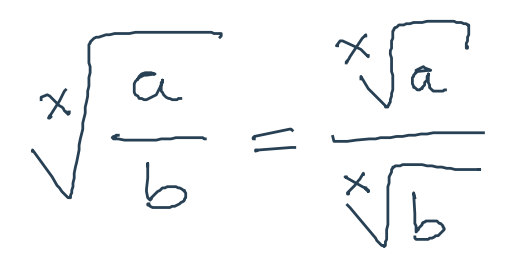 ˣ√(a/b) = ˣ√a / ˣ√b